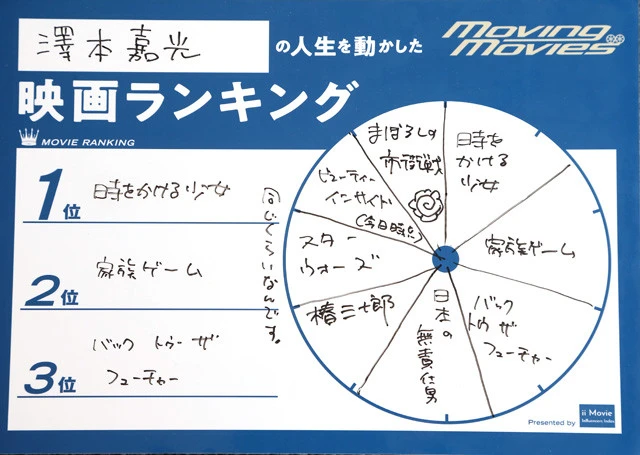 澤本嘉光
の人生を動かした
Moving Movies
映画ランキング
MOVIE RANKING
1位
時をかける少女
2位
家族ゲーム
3位
バック トゥー ザ
フューチャー
同じくらいなんです。
時を
かける
少女
家族ゲーム
バック
トゥ ザ
フューチャー
日本の
無責任男
椿三十郎
スター
ウォーズ
ビューティー
インサイド
(今日時点)
まぼろしの
市街戦
Presented by
ii Movie